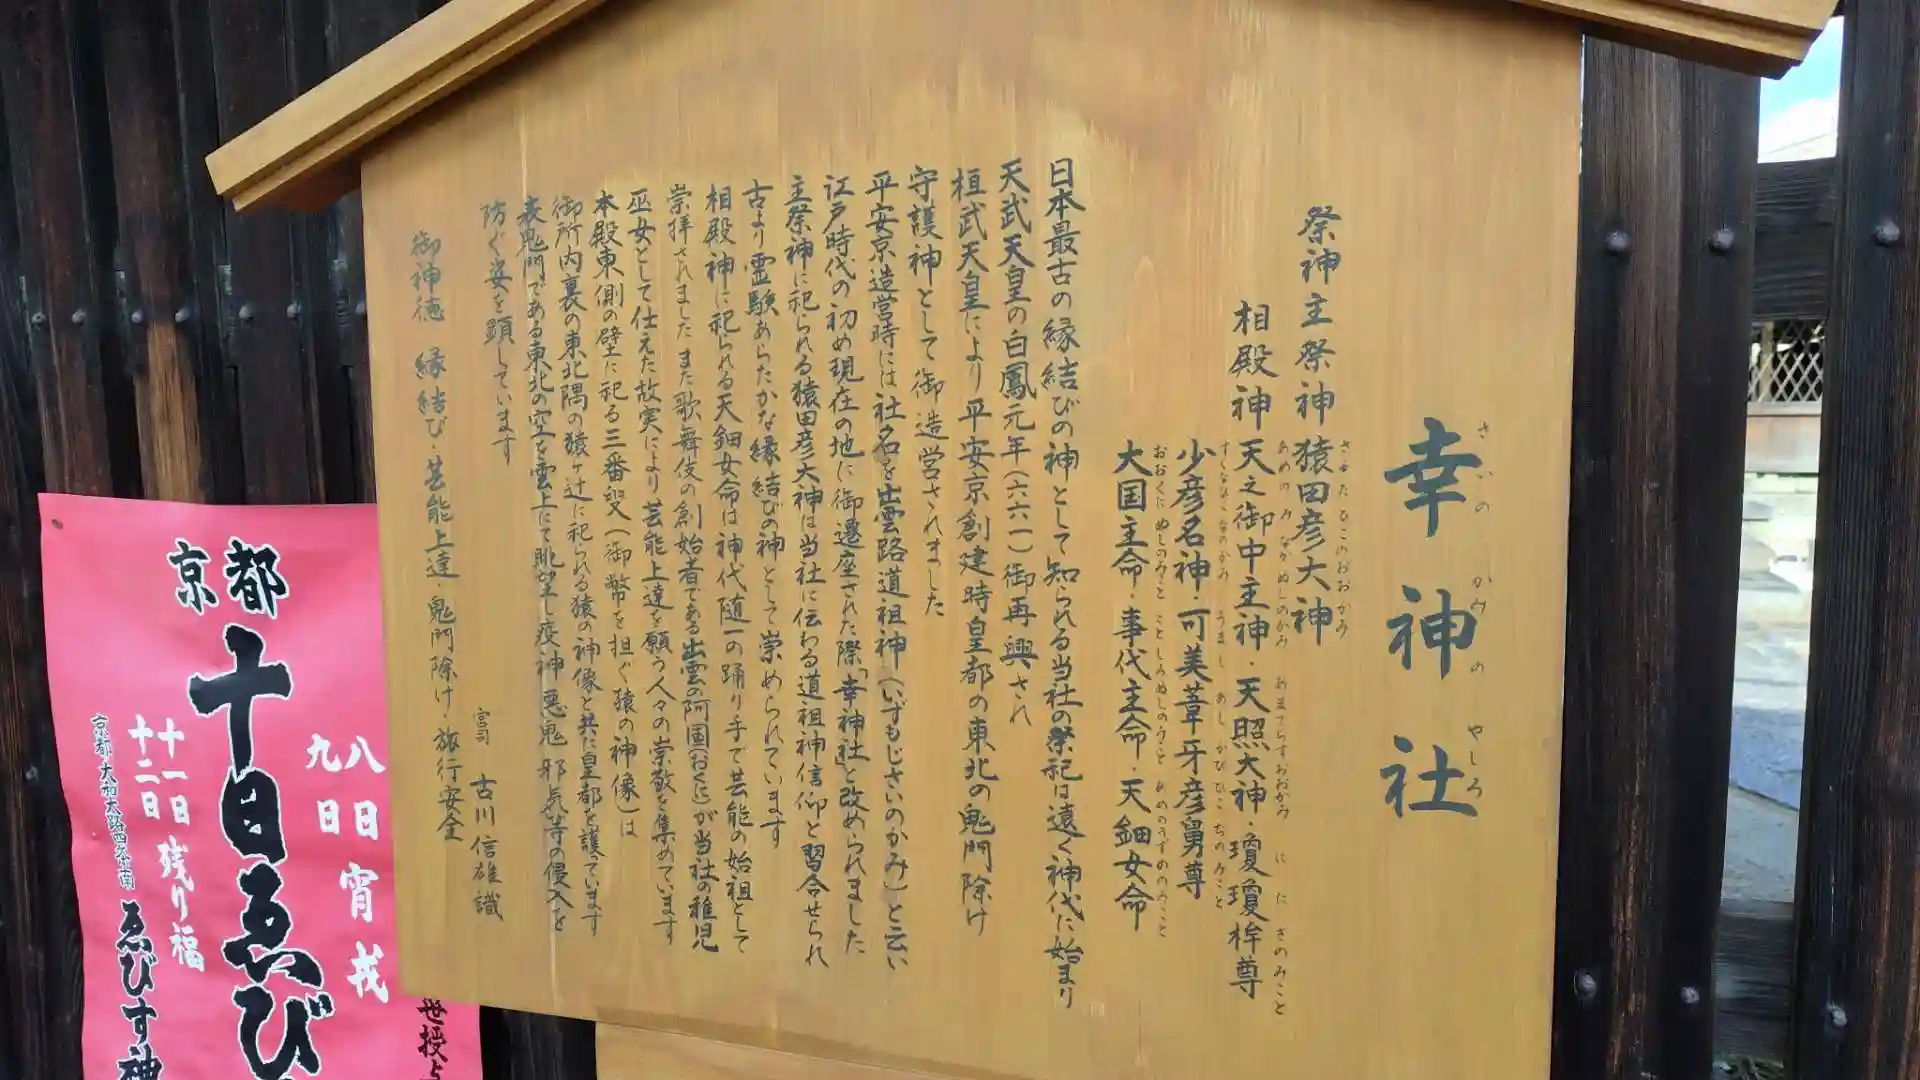 幸神社
さいのかみのやしろ
祭神主祭神猿田彦大神
さるたひこのおおかみ
相殿神天之御中主神・天照大神・瓊瓊杵尊
あめのみなかぬしのかみ あまてらすおおかみ ににぎのみこと
少彦名神・可美葦牙彦舅尊
すくなひこなのかみ うましあしかびひこちのみこと
大国主命・事代主命・天鈿女命
おおくにぬしのみこと ことしろぬしのみこと あめのうずめのみこと
日本最古の縁結びの神として知られる当社の祭祀は遠く神代に始まり
天武天皇の白鳳元年(六六一)御再興され
桓武天皇により平安京創建時皇都の東北の鬼門除け
守護神として御造営されました
平安京造営時には社名を出雲路道祖神(いずもじさいのかみ)と云い
江戸時代の初め現在の地に御遷座された際「幸神社」と改められました
主祭神に祀られる猿田彦大神は当社に伝わる道祖神信仰と習合せられ
古より霊験あらたかな縁結びの神として崇められています
相殿神に祀られる天鈿女命は神代随一の踊り手で芸能の始祖として
崇拝されました また歌舞伎の創始者である出雲の阿国(おくに)が当社の稚児
巫女として仕えた故実により芸能上達を願う人々の崇敬を集めています
本殿東側の壁に祀る三番叟(御幣を担ぐ猿の神像)は
御所内裏の東北隅の猿ヶ辻に祀られる猿の神像と共に皇都を護っています
表鬼門である東北の空を雲上にて眺望し疫神 悪鬼 邪気等の侵入を
防ぐ姿を顕しています
宮司 古川信雄識
御神徳 縁結び・芸能上達・鬼門除け・旅行安全
京都
十日ゑび
八日宵戎
九日
十一日残り福
十二日
京都・大和大路四条南
ゑびす神
世授与